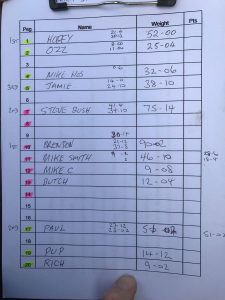 Peg Name Weight Pts
1st 1 HARRY 52-00
2 OZZ 25-04
3
4 MIKE HO 32-06
3rd 5 JAMIE 14-0 24-10 38-10
6
2nd 7 STEVE BUSH 75-14
8
9
1st 10 BRENTON 90-02
11 MIKE SMITH 46-10
12 MIKE C 9-08
13 BUTCH 12-04
14
15
16
2nd 17 PAUL 51-02
18
19 PUP 14-12
20 RICH 9-02